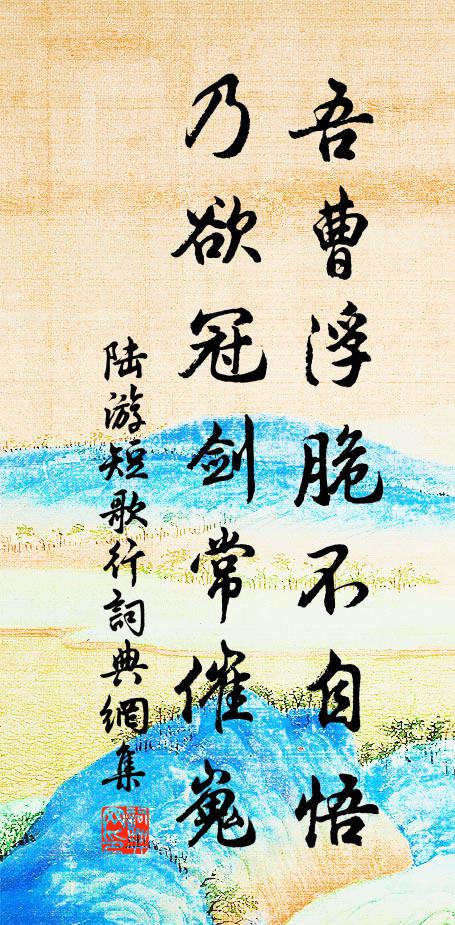 吾曹浮脆不自悟
乃欲冠劍常催嵬
陆游短歌行詞典網集